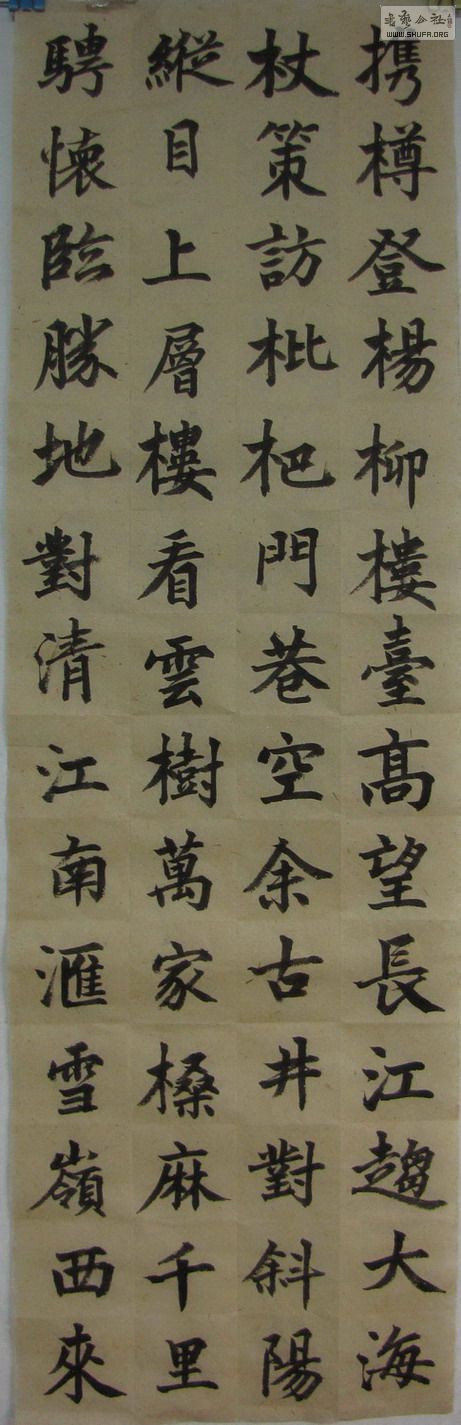 携樽登楊柳樓臺高望長江趨大海
杖策訪枇杷門巷空余古井對斜陽
縱目上層樓看雲樹萬家槡麻千里
騁懷臨勝地對清江南滙雪嶺西來
WWW.SHUFA.ORG